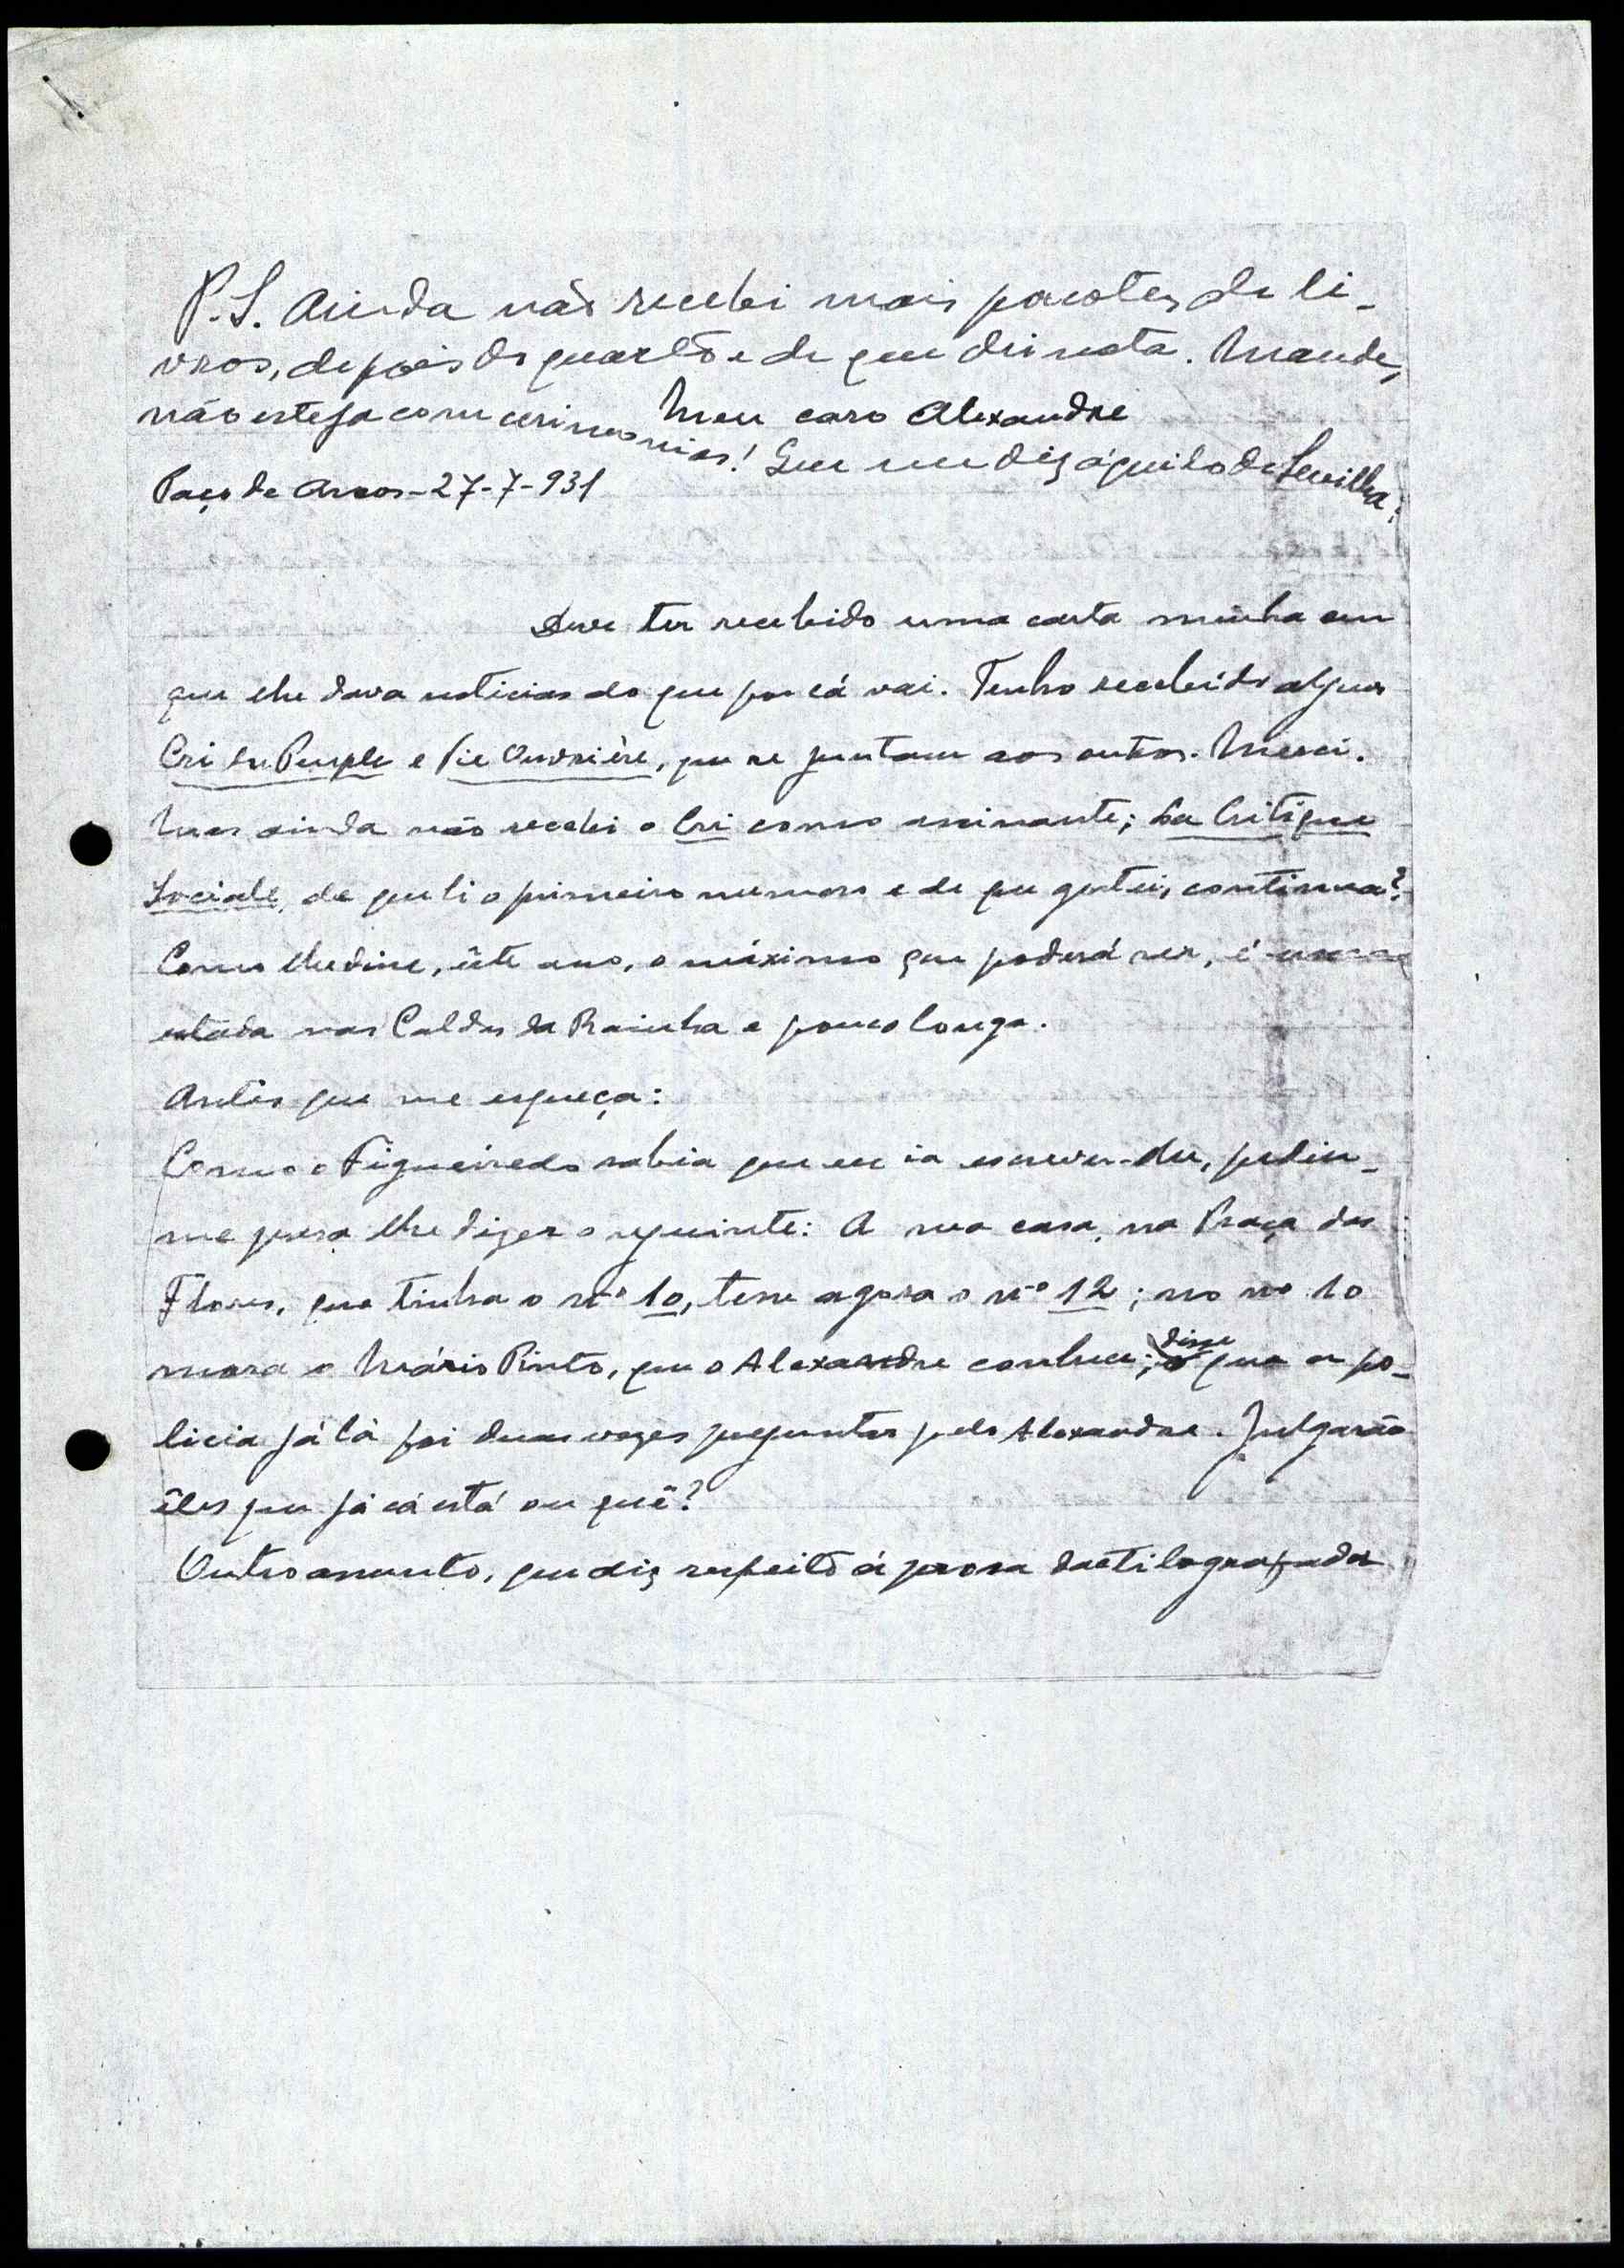 P.S. Ainda não recebi mais pacotes de li-
vros, depois do quarto e de que dei nota. Mande,
não esteja com cerimonias! Que me diz áquilo de Sevilha?
Meu caro Alexandre
Paço de Arcos-27-7-931
Deve ter recebido uma carta minha em
que lhe dava noticias do que por cá vai. Tenho recebido alguns
Cri du Peuple e Vie Ouvrière, que se juntam aos outros. Merci.
Mas ainda não recebi o Cri como assinante; La Critique
Sociale, de que li o primeiro numero e de que gostei, continua?
Como lhe disse, êste ano, o máximo que poderá ser, é uma
estada nas Caldas da Rainha e pouco longa.
Antes que me esqueça:
Como o Figueiredo sabia que eu ia escrever-lhe, pediu-
me para lhe dizer o seguinte: A sua casa, na Praça das
Flores, que tinha o nº 10, tem agora o nº 12; no nº 10
mora o Mário Pinto, que o Alexandre conhece; disse que a po-
licia já lá foi duas vezes preguntar pelo Alexandre. Julgarão
êles que já cá está ou quê?
Outro assunto, que diz respeito á prosa dactilografada